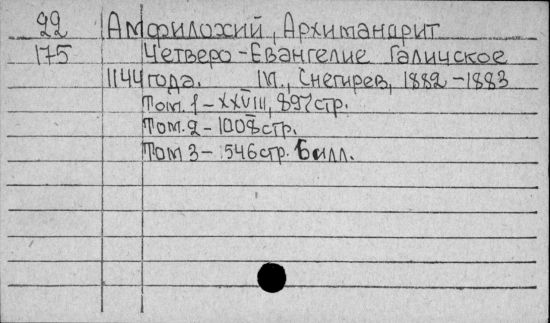 22 Амфилохий, Архимандрит
175 Четверо-Евангелие Галичское
1144 года. М., Снегирев, 1882-1883
Том. 1-XXVIII, 897 стр.
Том. 2-1008 стр.
Том 3- 546 стр. 6 илл.